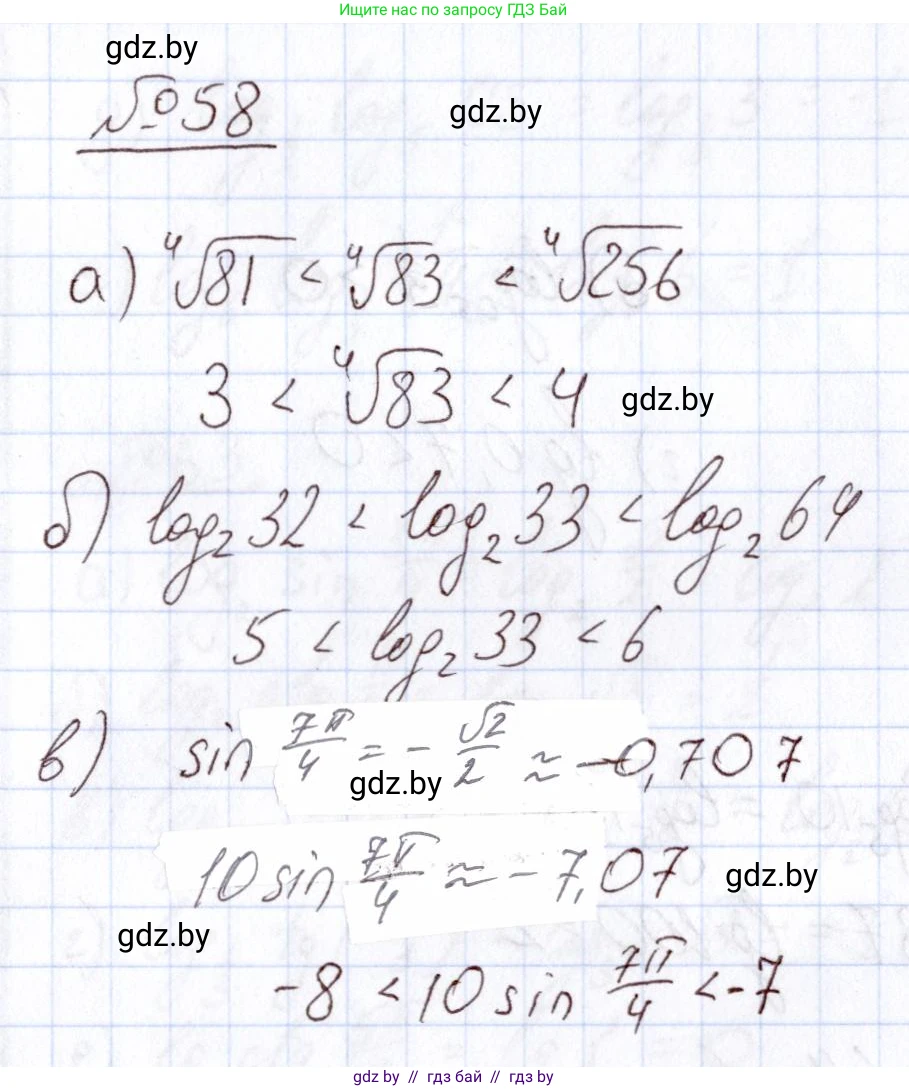 Ищите нас по запросу ГДЗ Бай
gdz.by
№58
gdz.by
а) ⁴√81 < ⁴√83 < ⁴√256
3 < ⁴√83 < 4
gdz.by
б) log₂ 32 < log₂ 33 < log₂ 64
5 < log₂ 33 < 6
в) sin 7π/4 = - √2/2 ≈ -0,707
gdz.by
10 sin 7π/4 ≈ - 7,07
gdz.by
gdz.by
-8 < 10 sin 7π/4 < -7
gdz.by // гдз бай // гдз by